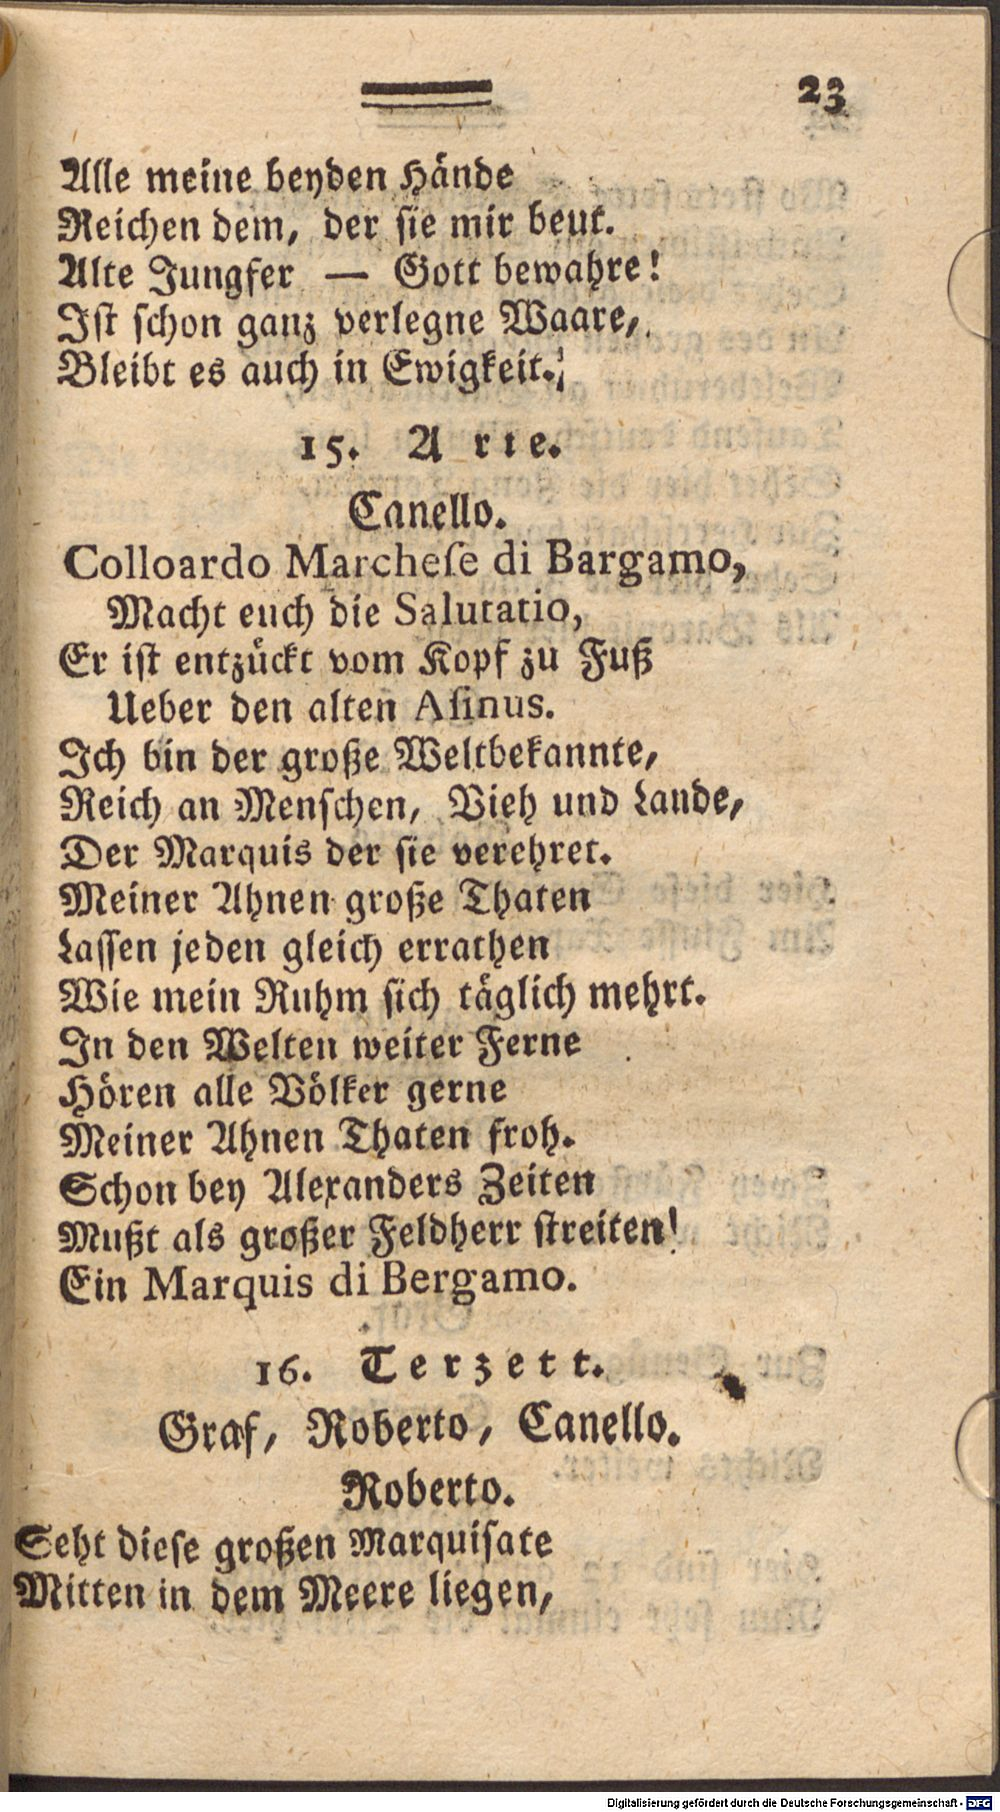 23
Alle meine beyden Hände
Reichen dem, der sie mir beut.
Alte Jungfer — Gott bewahre!
Ist schon ganz verlegne Waare,
Bleibt es auch in Ewigkeit.
15. Arie.
Canello.
Colloardo Marcheſe di Bargamo,
Macht euch die Salutatio,
Er ist entzückt vom Kopf zu Fuß
Ueber den alten Aſinus.
Ich bin der große Weltbekannte,
Reich an Menschen, Vieh und Lande,
Der Marquis der sie verehret.
Meiner Ahnen große Thaten
Lassen jeden gleich errathen
Wie mein Ruhm sich täglich mehrt.
In den Welten weiter Ferne
Hören alle Völker gerne
Meiner Ahnen Thaten froh.
Schon bey Alexanders Zeiten
Mußt als großer Feldherr streiten!
Ein Marquis di Bergamo.
16. Terzett.
Graf, Roberto, Canello.
Roberto.
Seht diese großen Marquisate
Mitten in dem Meere liegen,
Digitalisierung gefördert durch die Deutsche Forschungsgemeinschaft - DFG